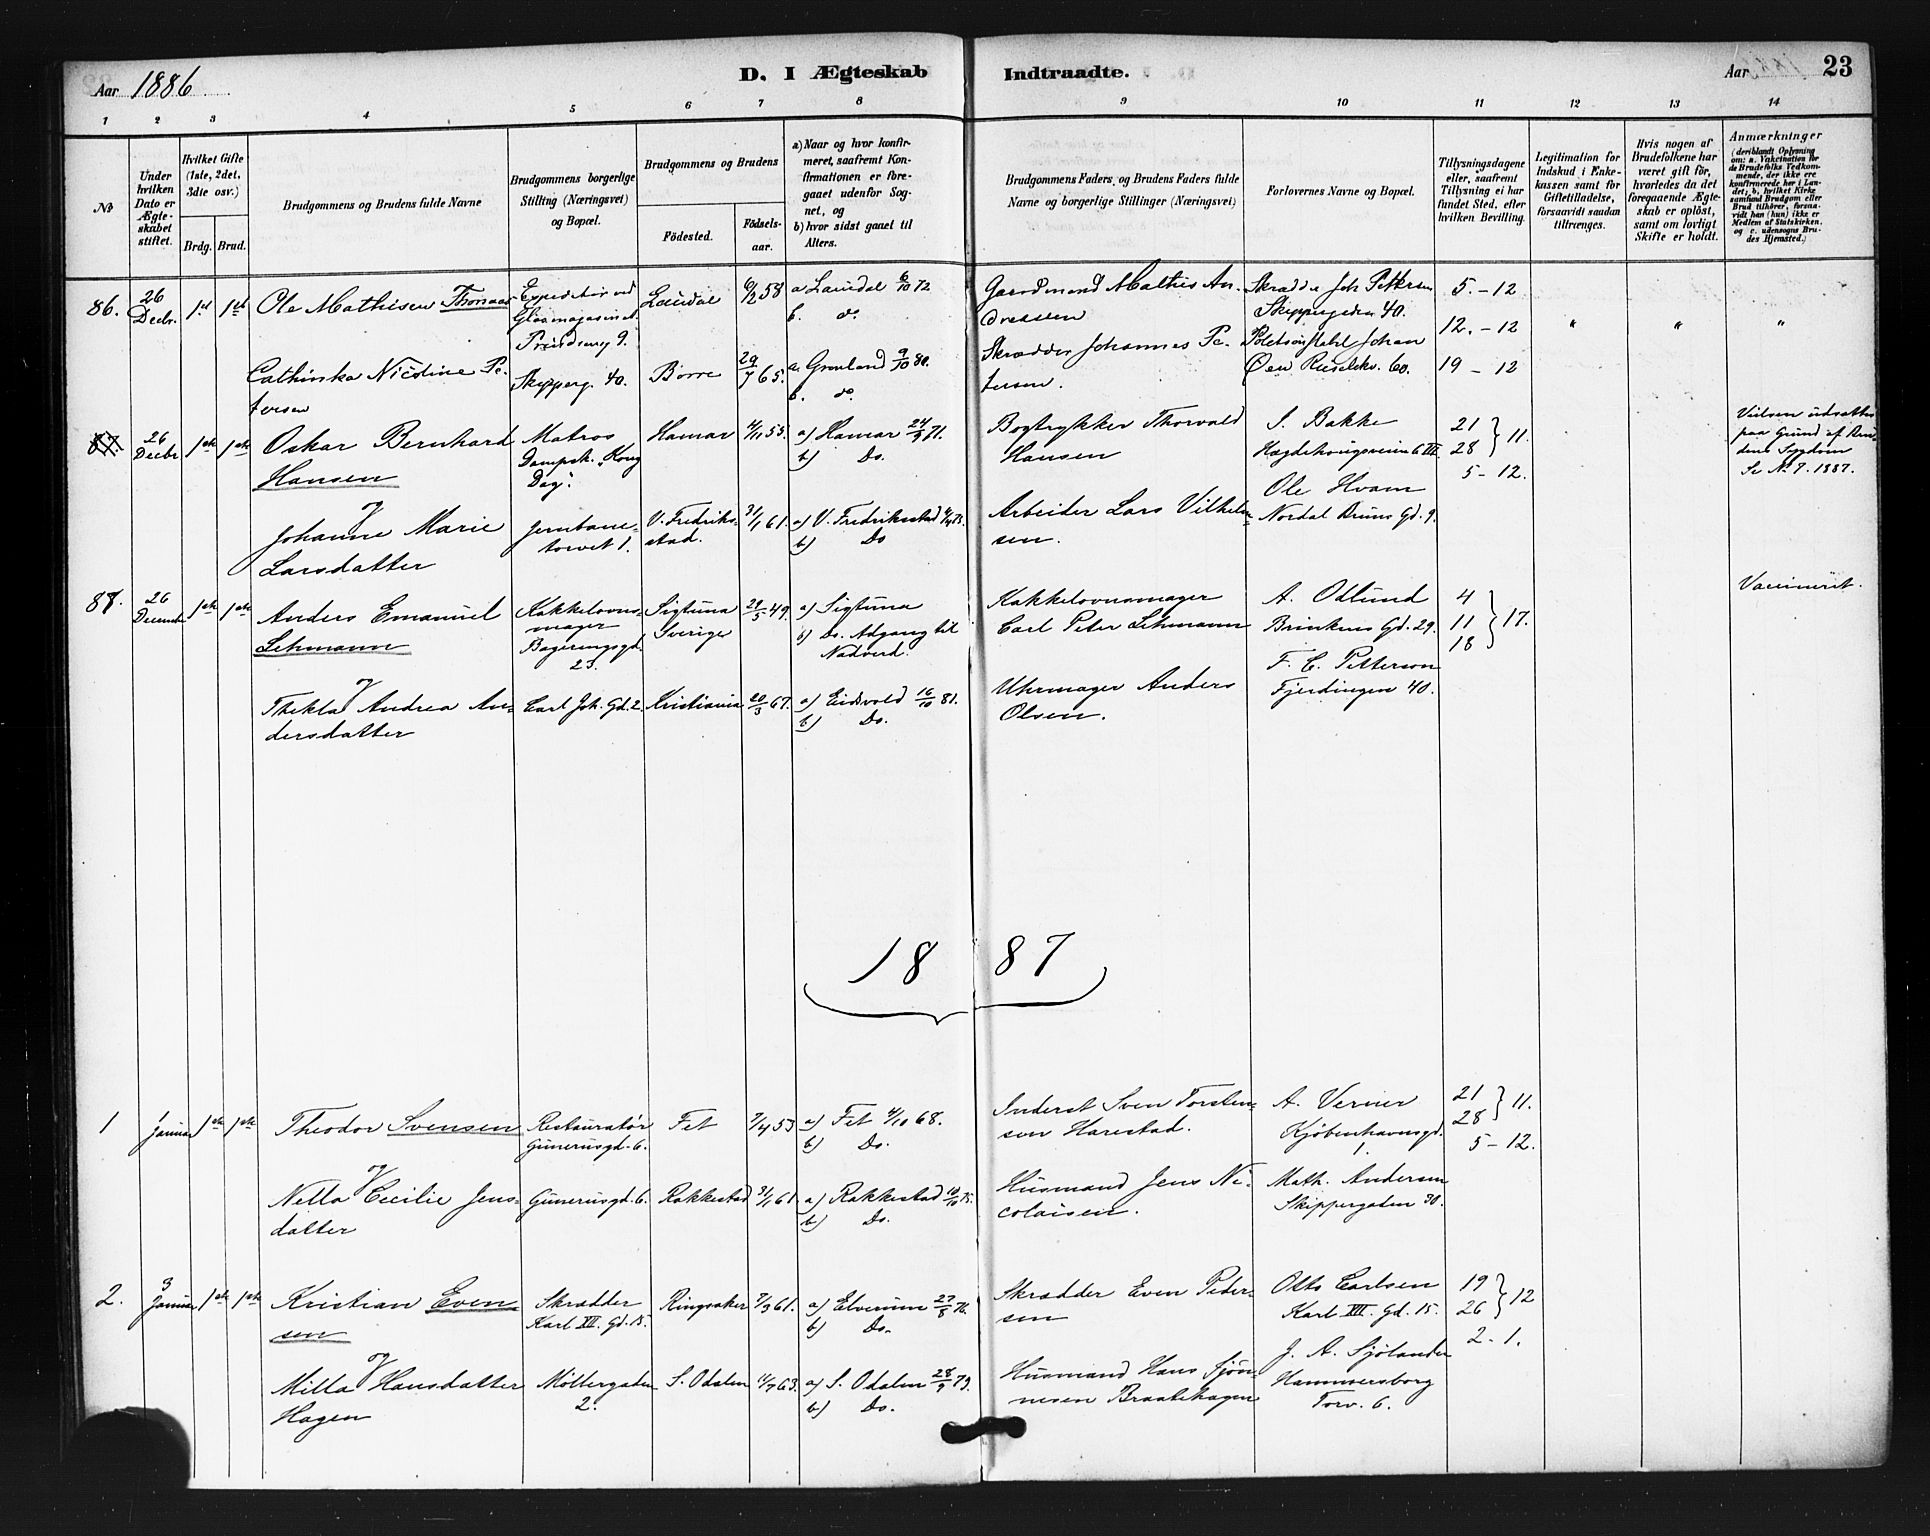 Aar 1886
D. I Ægteskab Indtraadte.
Aar
23
1 2 3 4 5 6 7 8 9 10 11 12 13 14
№
Under hvilken Dato er Ægte-skabet stiftet.
Hvilket Gifte (1ste, 2det, 3die osv.)
Brdg. Brud.
Brudgommens og Brudens fulde Navne
Brudgommens borgerlige Stilling (Næringsvei) og Bopæl.
Brudgommens og Brudens
Födested.
Födsels-aar.
a) Naar og hvor konfir-meret, saafremt Kon-firmationen er fore-gaaet udenfor Sog-net, og
b) hvor sidst gaaet til Alters.
Brudgommens Faders og Brudens Faders fulde Navne og borgerlige Stillinger (Næringsvei)
Forlovernes Navne og Bopæl.
Tillysningsdagene eller, saafremt Tillysning ei har fundet Sted, efter hvilken Bevilling.
Legitimation for Indskud i Enke-kassen samt for Giftetilladelse, forsaavidt saadan tiltrænges.
Hvis nogen af Brudefolkene har været gift för, hvorledes da det foregaaende Ægte-skab er oplöst, samt om lovligt Skifte er holdt.
Anmærkninger
(deriblandt Oplysning om: a. Vakcination for de Brudefolks Vedkom-mende, der ikke ere konfirmerede her i Lan-det; b. hvilket Kirke samfund Brudgom eller Brud tilhörer, forsaa-vidt han (hun) ikke er Medlem af Statskirken, og c. udensogns Bru-des Hjemsted.)
86. 26 Decbr. 1st 1ste Ole Mathisen Thorsaas
Expeditør ved Glasmagasinet. Prindseng 9.
Laurdal 6/12 58 a Laurdal 6/10 72
b. do.
Gaardmand Mathis An-
dreassen
Skrædder Joh Pettersen
Skippergaden 40.
5. - 12
12. - 12
19 - 12
" " "
Cathinka Nicoline Pe-
tersen
Skipperg. 40. Borre 29/7 65. a. Grønland 9/10 80.
b. do.
Skrædder Johannes Pe-
tersen.
Johan
60.
87. 26 Decbr 1ste 1ste Oskar Bernhard
Hansen
Matros
Dampsk. "Kong
Dag".
Hamar 4/11 55. a) Hamar 24/9 71.
b) Do.
Bogtrykker Thorvald
Hansen
I. Bakke
Hægdehougsveien 6 III.
21
28 } 11.
5 - 12.
Vielsen udsattes
paa Grund af Bru-
dens Sygdom
Se N. 7. 1887.
og
Johanne Marie
Larsdatter
Jernbane-
torvet 1.
V. Fredriks-
stad.
31/1 61. a) V. Fredriksstad
b) Do
Arbeider Lars Vilhelm-
sen.
Ole Hvam
Nordal Bruns Gd. 9.
87. 26 Decembr 1ste 1ste Anders Emanuel
Lehmann
Kakkelovns-
mager
Bogeringsgd.
23.
Sigtuna
Sverige
29/5 49. a) Sigtuna
b) Do. Adgang til
Nadverd.
Kakkelovnsmager
Carl Peter Lehmann
A. Odlund
Brinkens Gd. 29.
4
11 } 17.
18
Vaccineret.
og
Thekla Andrea An-
dersdatter
Carl Joh. Gd. 2. Kristiania 20/3 67. a) Eidsvold 16/10 81.
b) Do.
Uhrmager Anders
Olsen.
F. C. Petterson
Fjerdingen 40.
1887
1 1 Januar 1ste 1ste Theodor Svensen
Restauratør
Gunerusgd. 6.
Fet 7/4 53 a) Fet 4/10 68.
b) Do.
Inderst Sven Torsten-
sen Harestad.
A. Verner
Kjøbenhavnsgd.
1.
21
28 } 11.
5 - 12.
og
Nella Cecilie Jens-
datter
Gunerusgd. 6. Rakkestad 31/1 61. a) Rakkestad 10/10 75.
b) Do.
Husmand Jens Ni-
colaisen.
Math. Andersen
Skippergaden 30.
2. 3 Januar 1ste 1ste Kristian Even
sen
Skrædder
Karl XII. Gd. 15.
Ringsaker 7/3 61. a) Elverum 27/8 76.
b) Do.
Skrædder Even Peder-
sen
Otto Carlsen
Karl XII. Gd. 15.
19
26 } 12
2 - 1.
og
Milla Hansdatter
Hagen
Møllergaden
2.
S. Odalen 11/7 63. a) S. Odalen 28/9 79.
b) Do.
Husmand Hans Sjøn-
nesen Braatehagen
J. A. Sjølander
Hammersborg
Torv. 6.